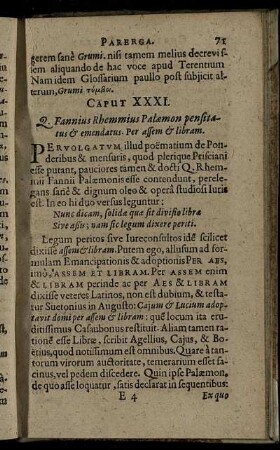 PARERGA. 71
gerem sanè Grumi. nisi tamem melius decrevis-
sem aliquando de hac voce apud Terentium
Nam idem Glossarium paullo post subjicit al-
terum, Grumi
CAPUT XXXI.
Q. Fannius Rhemmius Palæmon pensita-
tus & emendatus. Per assem & libram.
PERVOLGATUM illud poëmatium de Pon-
deribus & mensuris, quod plerique Prisciani
esse putant, pauciores tamen & docti Q. Rhem-
mii Fannii Palæmonis esse contendunt, perele-
gans sanè & dignum oleo & operâ studiosi lutis
est. In eo hi duo versus leguntur:
Nunc dicam, solidæ quæ sit divisio libræ
Sive assis; nam sic legum dixere periti.
Legum peritos sive Jureconsultos idê scilicet
dixisse assem & libram. Putem ego, allusum ad for-
mulam Emancipationis & adoptionis PER AES,
imò, ASSEM ET LIBRAM. Per ASSEM enim
& LIBRAM perinde ac per AES & LIBRAM
dixisse veteres Latinos, non est dubium, & testa-
tur Suetonius in Augusto: Cajum & Lucium adop-
tavit domi per assem & libram: quê locum ita eru-
ditissimus Casaubonus restituit. Aliam tamen ra-
tionem esse Libræ, scribit Agellius, Cajus, & Bo-
ëtius, quod notissimum est omnibus. Quare à tan-
torum virorum auctoritate, temerarium esset fa-
cinus, vel pedem discedere. Quin ipse Palæmon,
de quo asse loquatur, satis declarat in sequentibus:
E 4 Ex quo